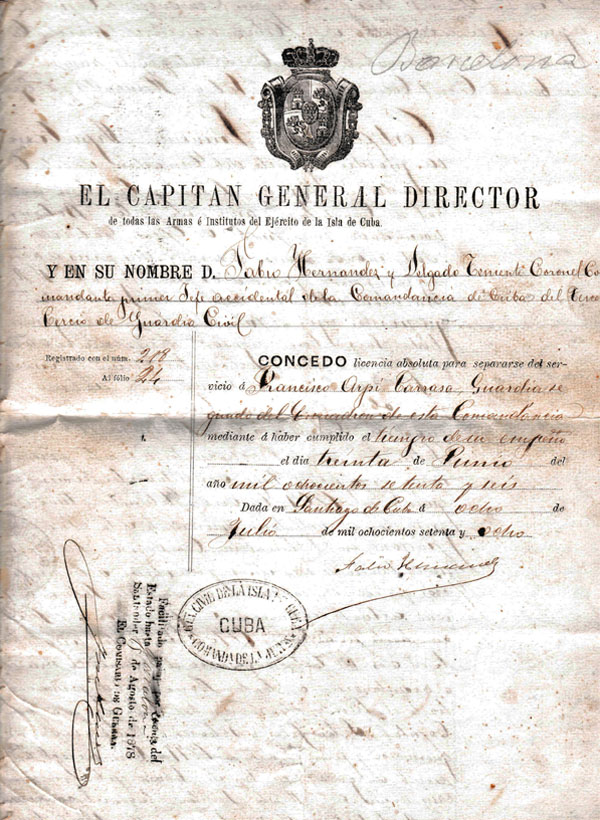 Barcelona
EL CAPITAN GENERAL DIRECTOR
de todas las Armas é Institutos del Ejército de la Isla de Cuba.
Y EN SU NOMBRE D. Fabio Hernandez y Delgado Teniente Coronel Co
mandante primer Jefe accidental de la Comandancia de Cuba del tercer
Tercio de Guardia Civil
Registrado con el núm. 208
Al fólio 24
CONCEDO licencia absoluta para separarse del ser-
vicio á Francisco Arpi Guardia se
gundo del Escuadron de esta Comandancia
mediante á haber cumplido el tiempo de su empeño
el dia treinta de Junio del
año mil ochocientos setenta y seis
Dada en Santiago de Cuba á ocho de
Julio de mil ochocientos setenta y ocho
Fabio Hernandez
CIVIL DE LA ISLA CUBA
CUBA
COMANDA DE LA
Facilitado por cuenta del
Estado hasta
Santander de Agosto de 1878
EL COMISARIO DE GUERRA.